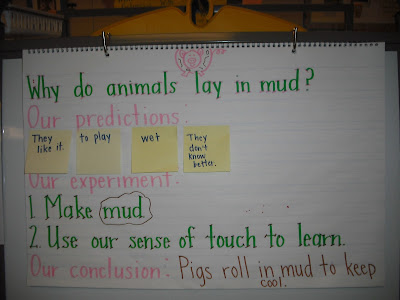 Why do animals lay in mud?
Our predictions:
They like it.
to play
wet
They don't know better.
Our experiment:
1. Make mud.
2. Use our sense of touch to learn.
Our conclusion: Pigs roll in mud to keep
cool.